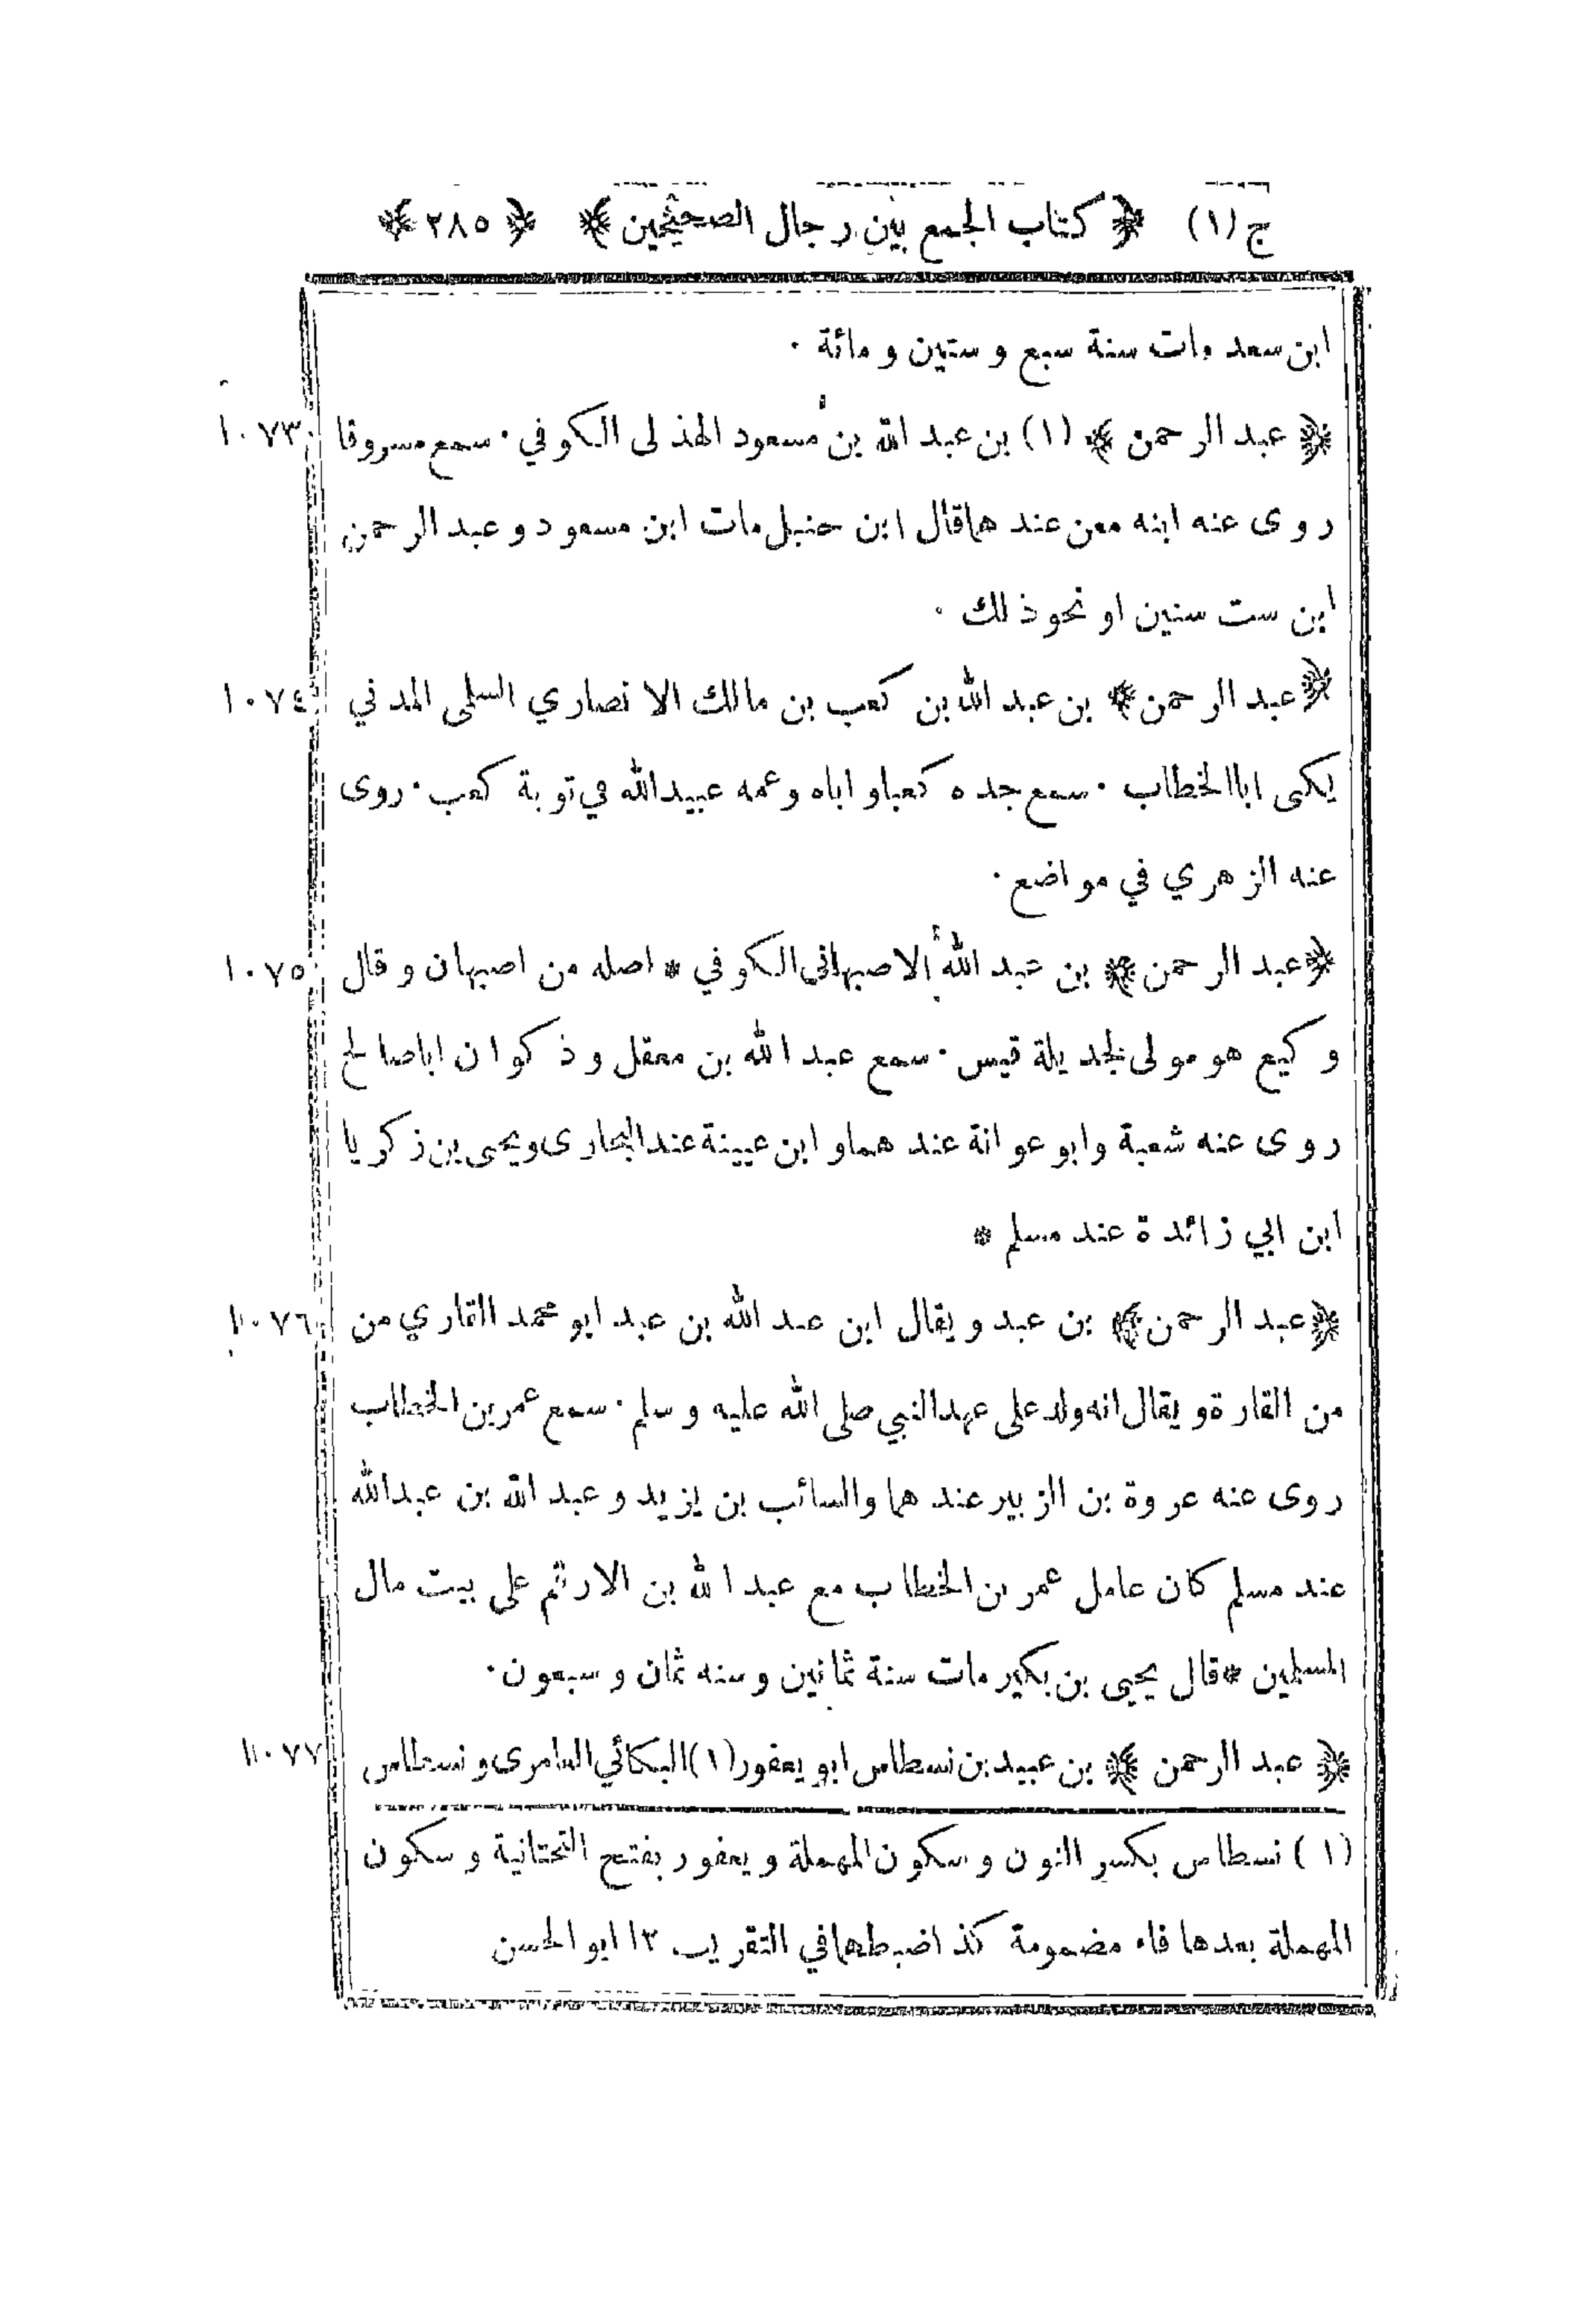 ج (١) ﴿ كتاب الجمع بين رجال الصحيحين ﴾ ﴿ ٢٨٥ ﴾
ابن سعد مات سنة سبع و ستين و مائة ٠
﴿ عبد الرحمن ﴾ (١) بن عبد الله بن مسعود الهذلى الكوفي ٠ سمع مسروقا ١٠٧٣
روى عنه ابنه معن عندهما قال ابن حنبل مات ابن مسعود و عبد الرحمن
ابن ست سنين او نحو ذلك ٠
﴿ عبد الرحمن ﴾ بن عبد الله بن كعب بن مالك الانصاري السلمى المدني ١٠٧٤
يكنى ابا الخطاب ٠ سمع جده كعبا و اباه و عمه عبيد الله في توبة كعب ٠ روى
عنه الزهري في مواضع ٠
﴿ عبد الرحمن ﴾ بن عبد الله الاصبهانى الكوفي * اصله من اصبهان و قال ١٠٧٥
وكيع هو مولى لجديلة قيس ٠ سمع عبد الله بن معقل و ذكوان اباصالح
روى عنه شعبة وابو عوانة عندهما و ابن عيينة عند البخارى ويحيى بن زكريا
ابن ابي زائدة عند مسلم *
﴿ عبد الرحمن ﴾ بن عبد و يقال ابن عبد الله بن عبد ابو محمد القاري من ١٠٧٦
من القارة و يقال انه ولد على عهد النبي صلى الله عليه و سلم ٠ سمع عمر بن الخطاب
روى عنه عروة بن الزبير عندهما والسائب بن يزيد و عبد الله بن عبد الله
عند مسلم كان عامل عمر بن الخطاب مع عبد الله بن الارقم على بيت مال
المسلمين * قال يحيى بن بكير مات سنة ثمانين و سنه ثمان و سبعون ٠
﴿ عبد الرحمن ﴾ بن عبيد بن نسطاس ابو يعفور (١) البكائي العامرى و نسطاس ١٠٧٧
(١) نسطاس بكسر النون و سكون المهملة و يعفور بفتح التحتانية و سكون
المهملة بعدها فاء مضمومة كذا ضبطهما في التقريب ١٢ ابو الحسن